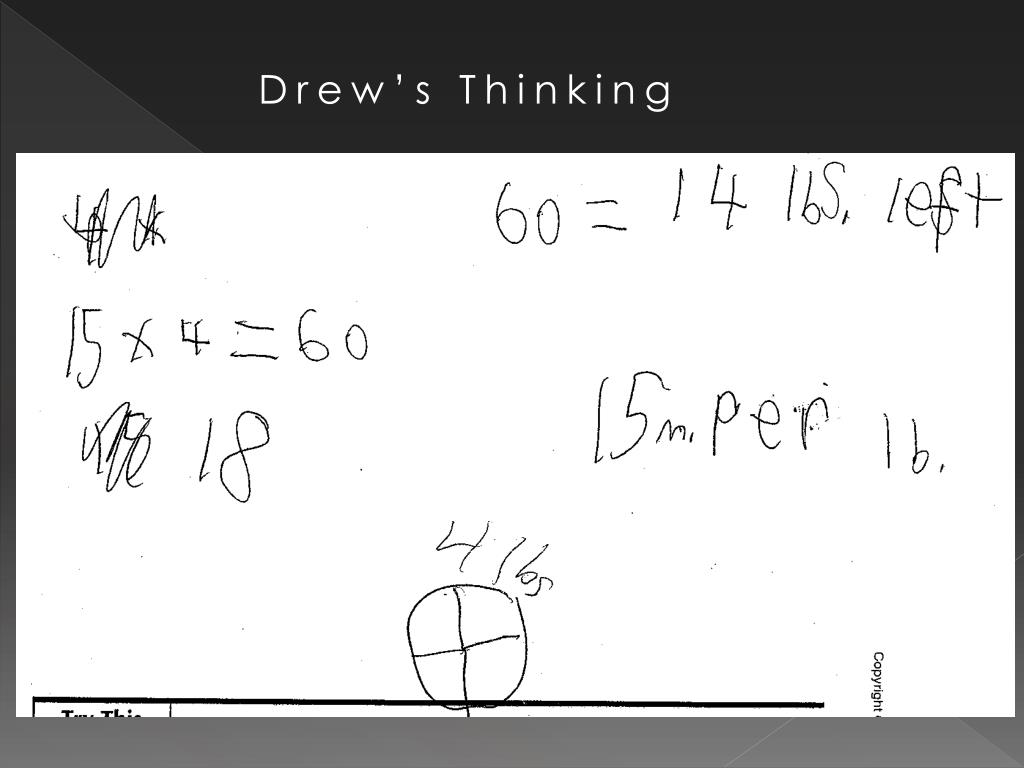 Drew's Thinking
60 = 14 lbs. left
15 x 4 = 60
15 m. per lb.
18
4 lbs
Copyright
Try This